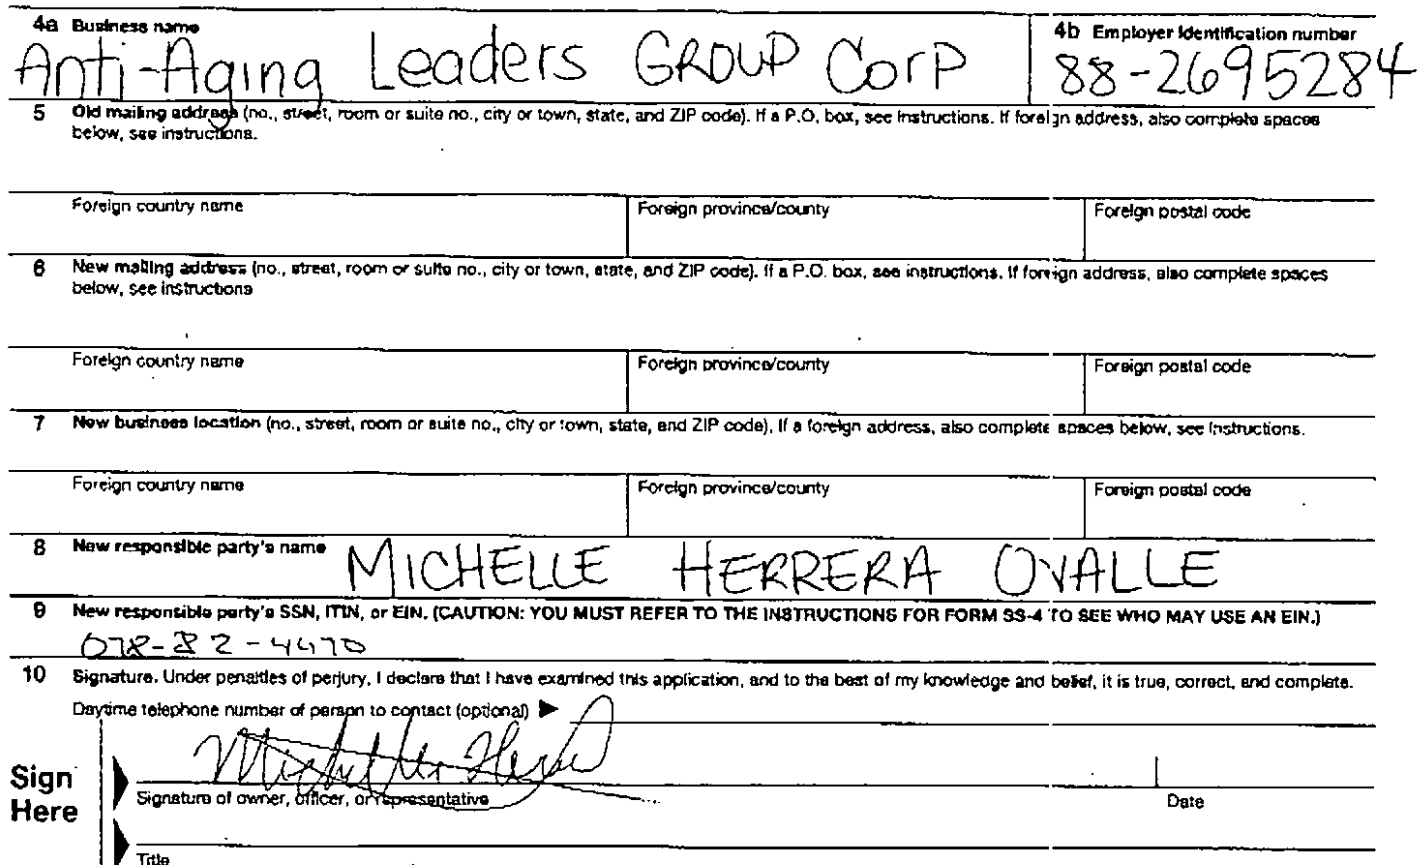 4a Business name
Anti-Aging Leaders GROUP Corp
4b Employer identification number
88-2695284
5 Old mailing address (no., street, room or suite no., city or town, state, and ZIP code). If a P.O. box, see instructions. If foreign address, also complete spaces
below, see instructions.
Foreign country name Foreign province/county Foreign postal code
6 New mailing address (no., street, room or suite no., city or town, state, and ZIP code). If a P.O. box, see instructions. If foreign address, also complete spaces
below, see instructions
Foreign country name Foreign province/county Foreign postal code
7 New business location (no., street, room or suite no., city or town, state, and ZIP code). If a foreign address, also complete spaces below, see instructions.
Foreign country name Foreign province/county Foreign postal code
8 New responsible party's name MICHELLE HERRERA OVALLE
9 New responsible party's SSN, ITIN, or EIN. (CAUTION: YOU MUST REFER TO THE INSTRUCTIONS FOR FORM SS-4 TO SEE WHO MAY USE AN EIN.)
10 Signature. Under penalties of perjury, I declare that I have examined this application, and to the best of my knowledge and belief, it is true, correct, and complete.
Daytime telephone number of person to contact (optional) ▶
Sign
Here
Signature of owner, officer, or representative Date
Title